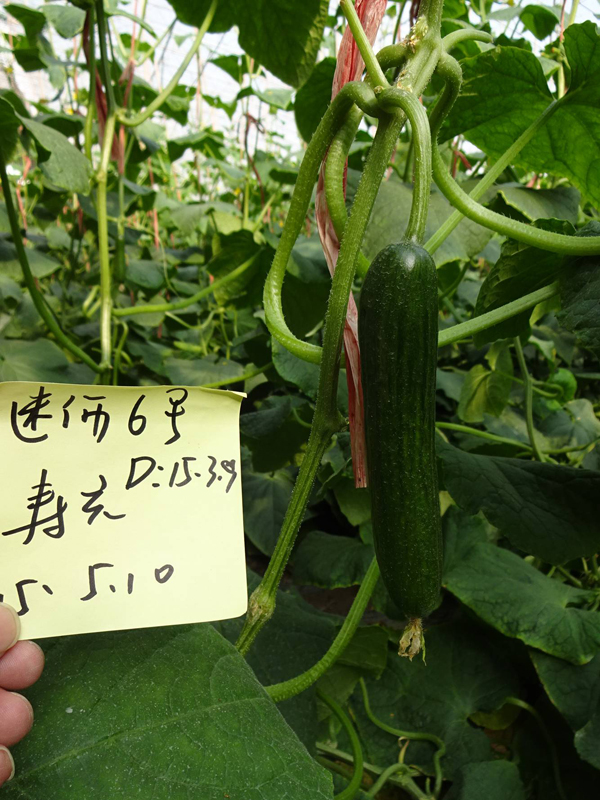 速俩6号
D:15.3.9
寿光
15.5.10